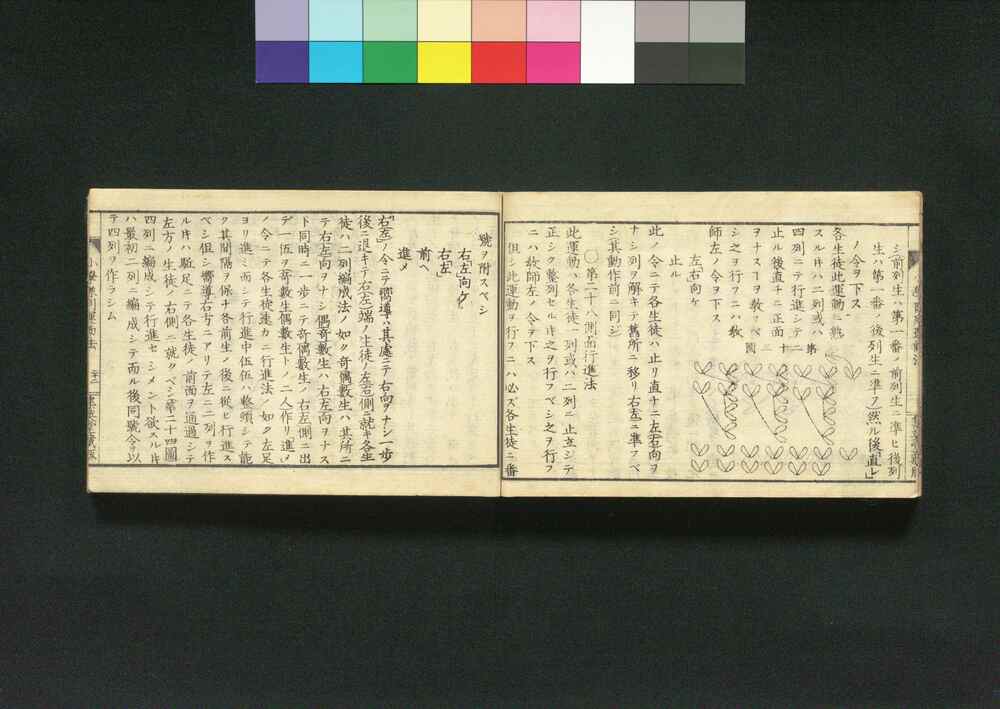 シ前列生ハ第一番ノ前列生ニ準ヒ後列
生ハ第一番ノ後列生ニ準フ然ル後「直レ」
ノ令ヲ下ス
各生徒此運動ニ熟
スルキハ二列或ハ
四列ニテ行進シテ
止ル後直チニ正面
ヲナスヿヲ教ユベ
シ之ヲ行フニハ教
師左ノ令ヲ下ス
第二十三圖
左「右向ケ
止ル
此ノ令ニテ各生徒ハ止リ直チニ左右向ヲ
ナシ列ヲ解キテ舊所ニ移リ右左ニ準フベ
シ其動作前ニ同ジ
〇第二十八側面行進法
此運動ハ各生徒一列或ハ二列ニ止立シテ
正シク整列セルキ之ヲ行フベシ之ヲ行フ
ニハ教師左ノ令ヲ下ス
但シ此運動ヲ行フニハ必ズ各生徒ニ番
號ヲ附スベシ
右左「向ケ」
右左
前ヘ
進メ
「右左」ノ令ニテ嚮導ハ其處ニテ右向ヲナシ一歩
後ニ退キテ右左端ノ生徒ノ左右側ニ就キ各生
徒ハ二列編成法ノ如ク奇偶數生ハ其所ニ
テ右左向ヲナシ偶奇數生ハ右左向ヲナス
ト同時ニ一歩ニテ奇偶數生ノ右左側ニ出
デ一伍ヲ奇數生偶數生トノ二人作リ進メ
ノ令ニテ各生徒速カニ行進法ノ如ク左足
ヨリ進ミ而シテ行進中伍伍ハ整頓シテ能
ク其間隔ヲ保チ各前生ノ後ニ從ヒ行進ス
ベシ但シ嚮導右方ニアリテ左ニ二列ヲ作
ルキハ駈足ニテ各生徒ノ前面ヲ通過シテ
左方ノ生徒ノ右側ニ就クベシ第二十四圖
四列ニ編成シテ行進セシメント欲スルキ
ハ最初ニ二列ニ編成シテ而ル後同號令ヲ以
テ四列ヲ作ラシム